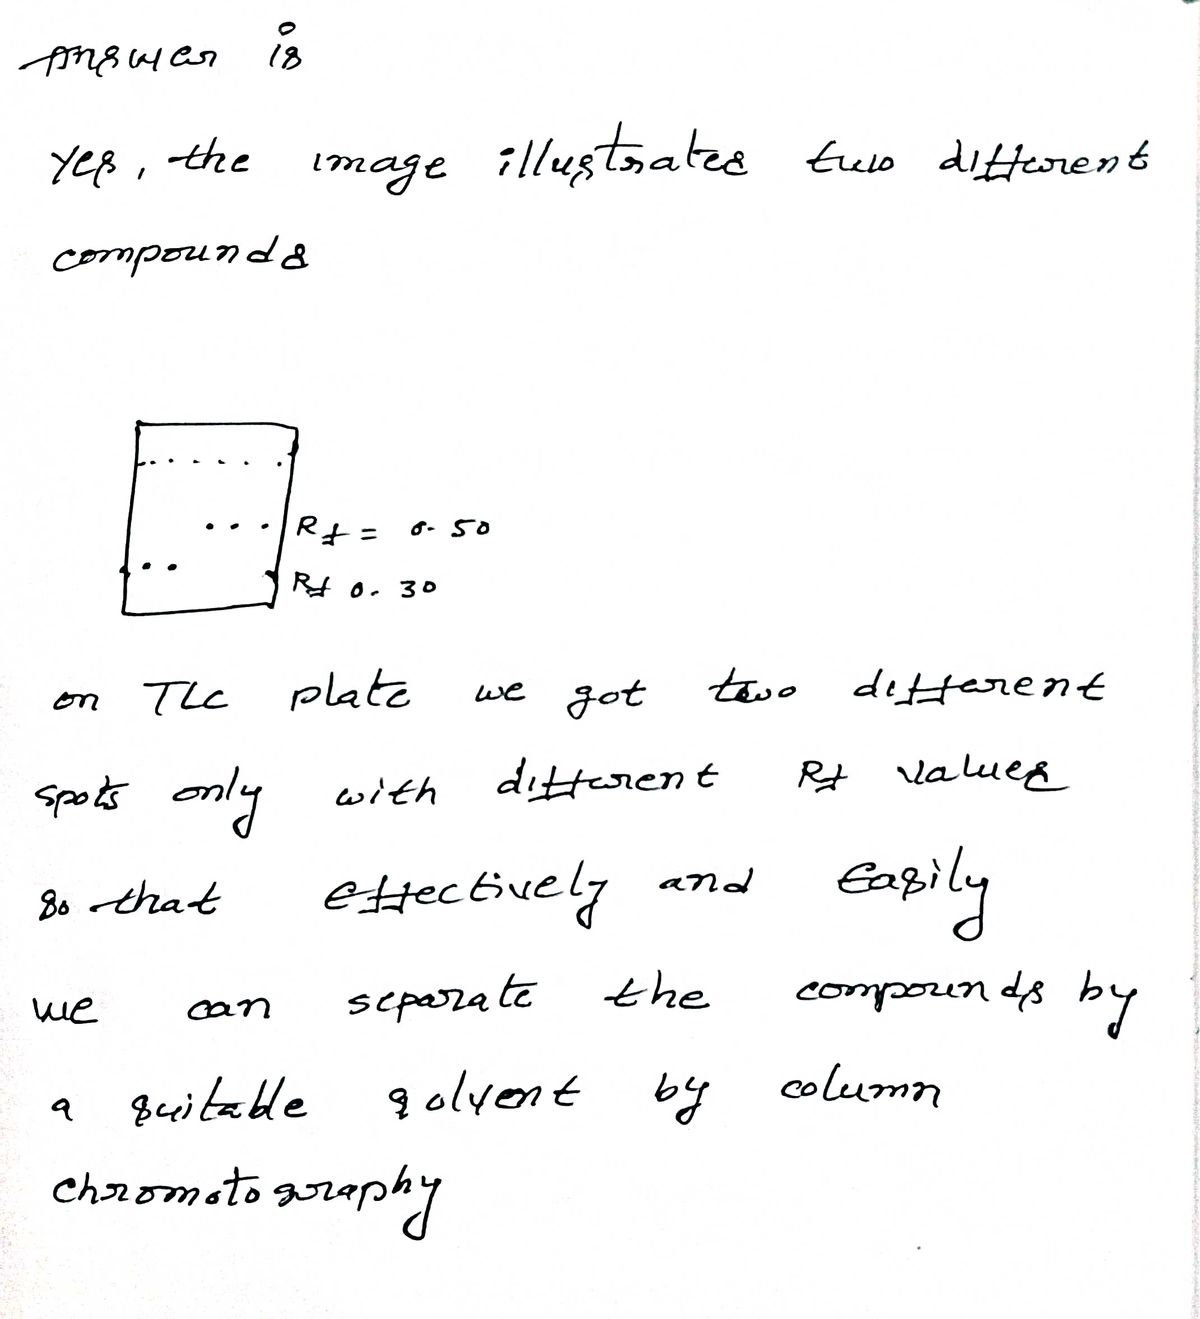 Answer is
Yes, the image illustrates two different
compounds
Rf = 0.50
Rf 0.30
on TLC plate we got two different
spots only with different Rf values
so that effectively and Easily
we can separate the compounds by
a suitable solvent by column
chromotography